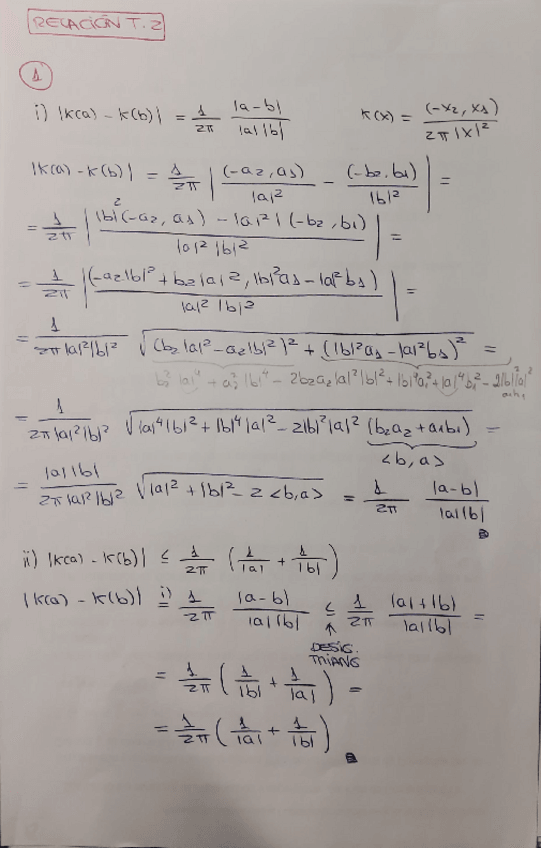 RELACIÓN T.2
1
i) |K(a) - K(b)| = 1/2π |a-b|/|a||b|    K(x) = (-x2, x1)/2π|x|²
|K(a) - K(b)| = 1/2π | (-a2, a1)/|a|² - (-b2, b1)/|b|² | =
= 1/2π | |b|²(-a2, a1) - |a|²|(-b2, b1) / |a|²|b|² | =
= 1/2π | (-a2|b|² + b2|a|², |b|²a1 - |a|²b1) / |a|²|b|² | =
= 1/2π|a|²|b|² √((b2|a|² - a2|b|²)² + (|b|²a1 - |a|²b1)²) =
b2²|a|⁴ + a2²|b|⁴ - 2b2a2|a|²|b|² + |b|⁴a1² + |a|⁴b1² - 2|b|²|a|² a1b1
= 1/2π|a|²|b|² √(|a|⁴|b|² + |b|⁴|a|² - 2|b|²|a|² (b2a2 + a1b1)) =
<b, a>
= |a||b|/2π|a|²|b|² √(|a|² + |b|² - 2 <b,a>) = 1/2π |a-b|/|a||b|
ii) |K(a) - K(b)| ≤ 1/2π (1/|a| + 1/|b|)
|K(a) - K(b)| =^i) 1/2π |a-b|/|a||b| ≤ 1/2π |a|+|b|/|a||b| =
↑
DESIG.
TRIANG
= 1/2π (1/|b| + 1/|a|) =
= 1/2π (1/|a| + 1/|b|)